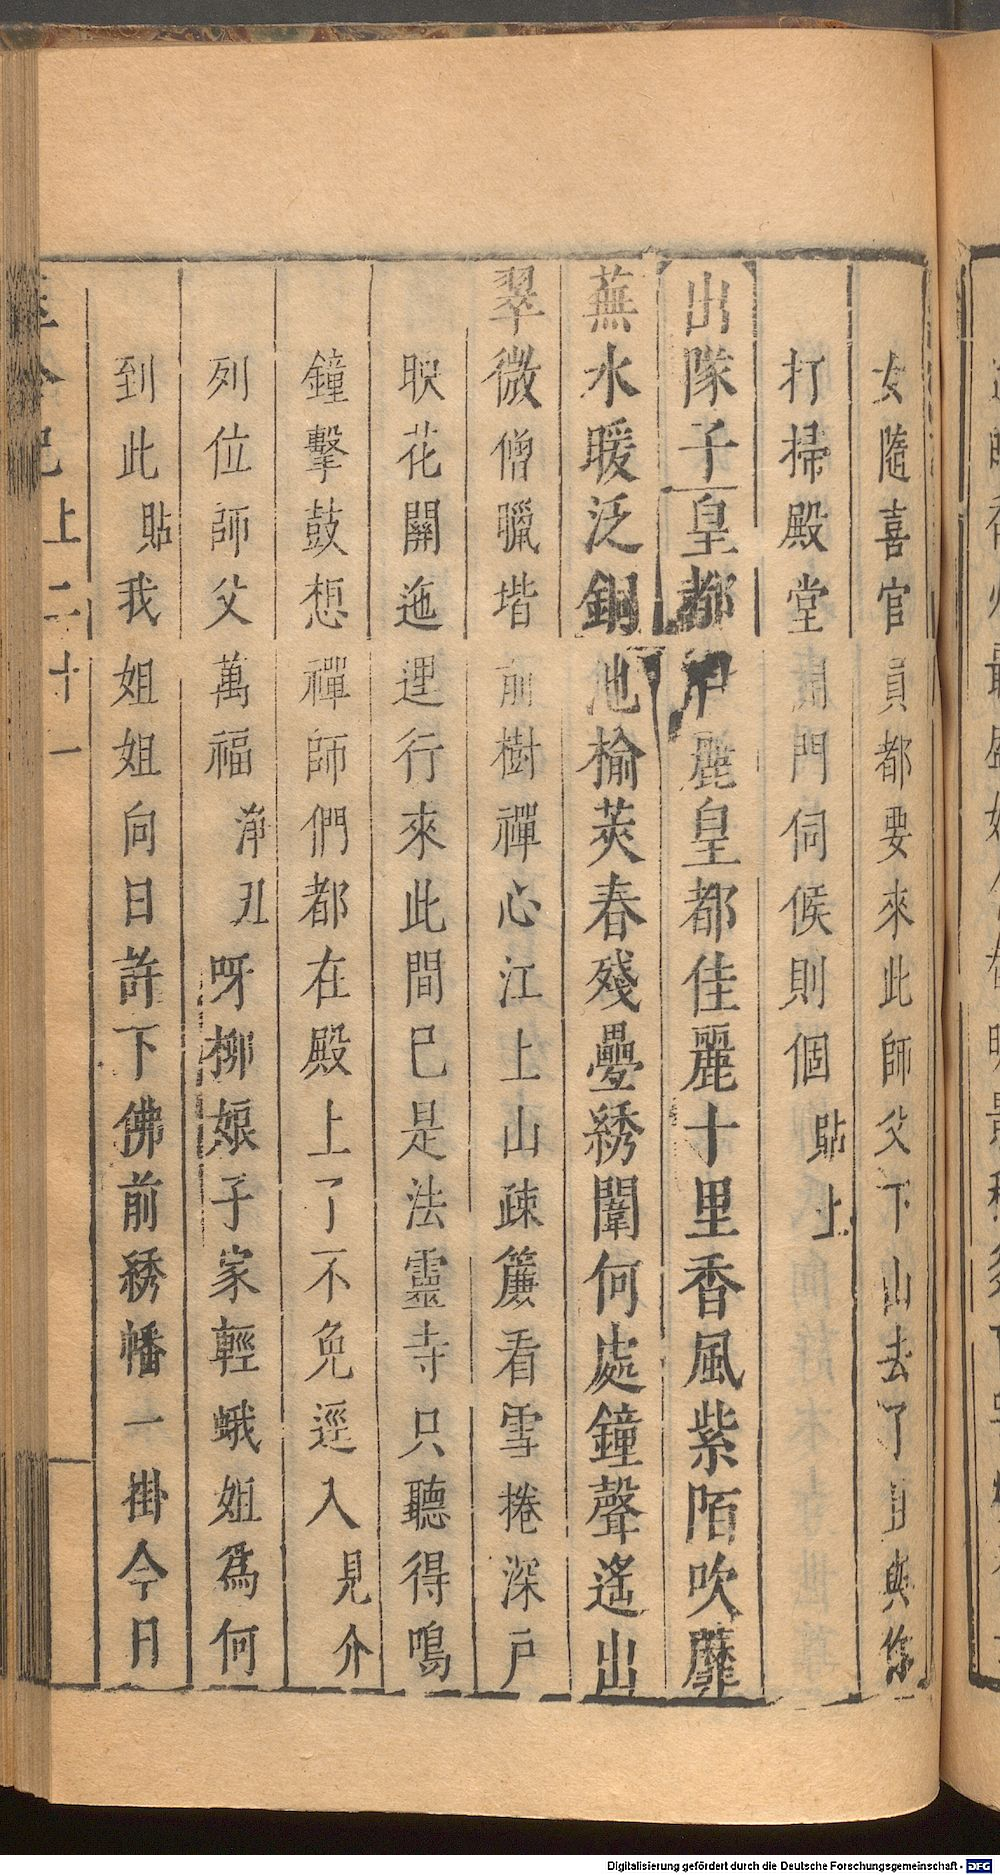 女隨喜官員都要來此師父下山去了且與您
打掃殿堂開門伺候則個貼上
出隊子皇都佳麗皇都佳麗十里香風紫陌吹蘼
蕪水暖泛銅池榆莢春殘疊綉闈何處鐘聲遙出
翠微僧臘堦前樹禪心江上山疎簾看雪捲深戶
映花關迤逗行來此間已是法靈寺只聽得鳴
鐘擊鼓想禪師們都在殿上了不免逕入見介
列位師父萬福淨丑呀柳娘子家輕蛾姐為何
到此貼我姐姐向日許下佛前綉幡一掛今日
上二十一
Digitalisierung gefördert durch die Deutsche Forschungsgemeinschaft - DFG